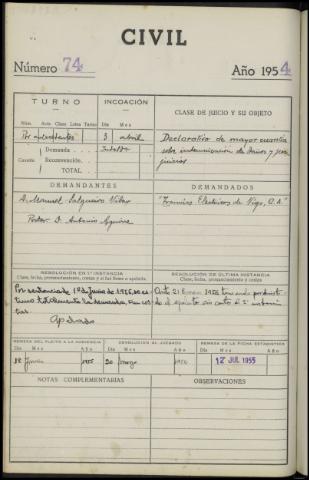 CIVIL
Número 74 Año 1954
TURNO INCOACIÓN CLASE DE JUICIO Y SU OBJETO
Núm. Auto Clase Letra Turno Día Mes
Por antecedentes 3 abril Declarativo de mayor cuantía
Demanda sobre indemnización de daños y per
Cuantía Reconvención. juicios
TOTAL
DEMANDANTES DEMANDADOS
D. Manuel Salgueiro "Tranvías Eléctricos de Vigo, S.A."
Procdor D. Antonio
RESOLUCIÓN EN 1ª INSTANCIA RESOLUCIÓN DE ÚLTIMA INSTANCIA
Clase, fecha, pronunciamiento, costas y si fué firme o apelada. Clase, fecha, pronunciamiento y costas
Por sentencia de 1º de Junio de 1955 Auto 21 1956 teniendo por desis-
totalmente la demanda, sin cos- de el apelante sin costas de 2ª instan-
tas. cia
Apelado
REMESA DEL PLEITO A LA AUDIENCIA DEVOLUCIÓN AL JUZGADO REMESA DE LA FICHA ESTADÍSTICA
Día Mes Año Día Mes Año Día Mes Año
28 Junio 1955 20 marzo 1956 12 JUL 1955
NOTAS COMPLEMENTARIAS OBSERVACIONES